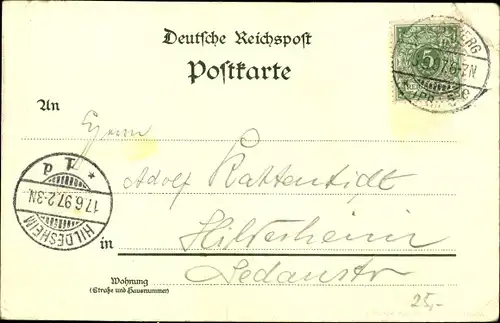 Deutsche Reichspost
Postkarte
An
Herrn
Adolf Rattentidt
in Hildesheim
Sedanstr
Wohnung
(Straße und Hausnummer)
HILDESHEIM
17.6.97.2-3N.
5
25,-